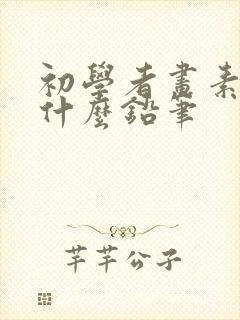 初學者畫素
什麼鉛筆
芊芊公子